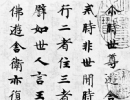 世尊
時非世間時
行二者住三者
譬如世人言王
佛遊舍衛亦復